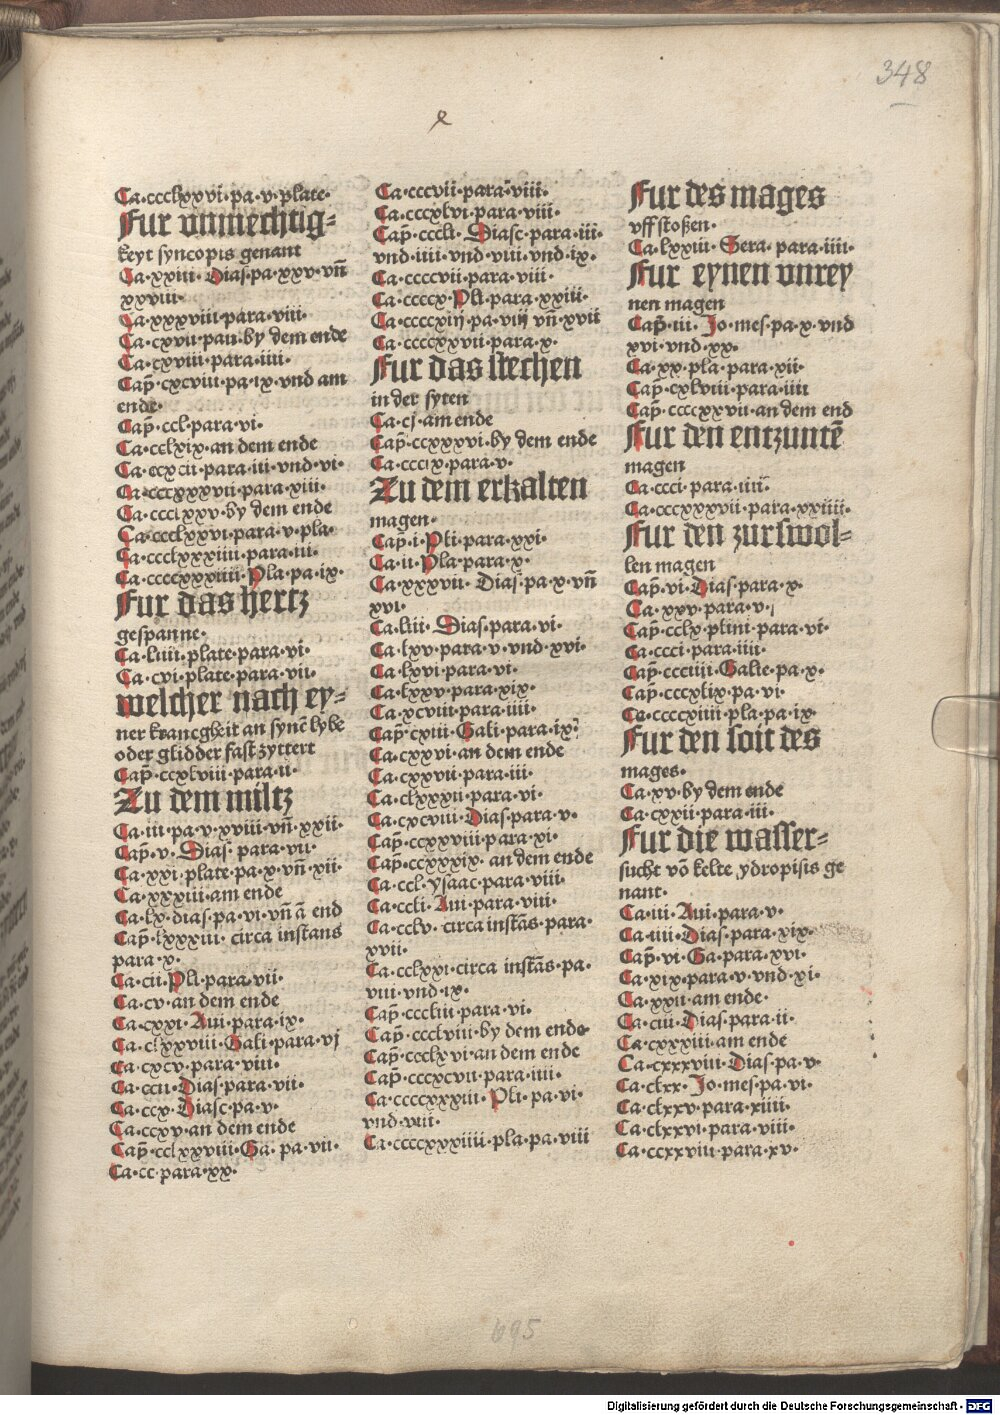 348
Ca·ccclxxvi·pa·v·plate·
Fur vnmechtig=
keyt syncopis genant
Ca·xxiii·Dias·pa·xxv·vñ
xxviii·
Ca·xxxviii·para·viii·
Ca·cxvii·pañ·by dem ende
Ca·cxviii·para·iiii·
Cap̃·cxcviii·pa·ix·vnd am
ende·
Cap̃·ccl·para·vi·
Ca·cclxix·an dem ende
Ca·ccxcii·para·iii·vnd·vi·
Ca·cccxxxvii·para·xiii·
Ca·ccclxxv·by dem ende
Ca·ccclxxvi·para·v·pla·
Ca·ccclxxxiiii·para·iii·
Ca·ccccxxxiiii·Pla·pa·ix·
Fur das hertz
gespanne·
Ca·liiii·plate·para·vi·
Ca·cvi·plate·para·vii·
welcher nach ey=
ner krancgheit an synẽ lybe
oder glidder fast zyttert
Cap̃·ccxlviii·para·ii·
Zu dem miltz
Ca·iii·pa·v·xviii·vñ·xxii·
Cap̃·v·Dias·para·vii·
Ca·xxi·plate·pa·x·vñ·xii·
Ca·xxxiii·am ende
Ca·lx·dias·pa·vi·vñ ã end
Cap̃·lxxxiii·circa instans
para·x·
Ca·cii·Pli·para·vii·
Ca·cv·an dem ende
Ca·cxxi·Aui·para·ix·
Ca·clxxviii·Gali·para·vj
Ca·cxcv·para·viii·
Ca·ccii·Dias·para·vii·
Ca·ccx·Diasc·pa·v·
Ca·ccxv·an dem ende
Cap̃·cclxxviii·Ga·pa·vii·
Ca·cc·para·xx·
Ca·cccvii·para·viii·
Ca·cccxlvi·para·viii·
Cap̃·cccli·Diasc·para·iii·
vnd·iiii·vnd·viii·vnd·ix·
Ca·ccccvii·para·viii·
Ca·ccccx·Pli·para·xxiii·
Ca·ccccxiij·pa·viij vñ·xvii
Ca·ccccxxvii·para·x·
Fur das stechen
in der syten
Ca·cj·am ende
Cap̃·ccxxxvi·by dem ende
Ca·cccix·para·v·
Zu dem erkalten
magen·
Cap̃·i·Pli·para·xxi·
Ca·ii·Pla·para·x·
Ca·xxxvii·Dias·pa·x·vñ
xvi·
Ca·liii·Dias·para·vi·
Ca·lxv·para·v·vnd·xvi·
Ca·lxvi·para·vi·
Ca·lxxv·para·xix·
Ca·xcviii·para·iiii·
Cap̃·cxiii·Gali·para·ix·
Ca·cxxvi·an dem ende
Ca·cxxvii·para·iii·
Ca·clxxxii·para·vi·
Ca·cxcviii·Dias·para·v·
Cap̃·ccxxviii·para·xi·
Cap̃·ccxxxix·an dem ende
Ca·ccl·ysaac·para·viii·
Ca·ccli·Aui·para·viii·
Ca·cclv·circa instãs·para·
xvii·
Ca·cclxxi·circa instãs·pa·
viii·vnd·ix·
Cap̃·cccliii·para·vi·
Cap̃·ccclviii·by dem ende·
Cap̃·ccclxvi·an dem ende
Cap̃·cccxcvii·para·iiii·
Ca·ccccxxxiii·Pli·pa·vi·
vnd·viii·
Ca·ccccxxxiiii·pla·pa·viii
Fur des mages
vffstoßen·
Ca·lxxiii·Sera·para·iiii·
Fur eynen vnrey
nen magen
Cap̃·iii·Jo·mes·pa·x·vnd
xvi·vnd·xx·
Ca·xx·pla·para·xii·
Cap̃·cxlviii·para·iiii
Cap̃·ccccxxvii·an dem end
Fur den entzuntẽ
magen
Ca·ccci·para·iiii·
Ca·cccxxxvii·para·xxiiii·
Fur den zurswol=
len magen
Cap̃·vi·Dias·para·x·
Ca·xxv·para·v·
Cap̃·cclx·plini·para·vi·
Ca·ccci·para·iiii·
Cap̃·ccciiii·Galie·pa·x·
Cap̃·cccxlix·pa·vi·
Ca·ccccxiiii·pla·pa·ix·
Fur den soit des
mages·
Ca·xv·by dem ende
Ca·cxxii·para·iii·
Fur die wasser=
sucht võ kelte ydropisis ge
nant·
Ca·iii·Aui·para·v·
Ca·iiii·Dias·para·xix·
Cap̃·vi·Ga·para·xvi·
Ca·xix·para·v·vnd·xi·
Ca·xxii·am ende·
Ca·ciii·Dias·para·ii·
Ca·cxxxiii·am ende
Ca·cxxxviii·Dias·pa·v·
Ca·clxx·Jo·mes·pa·vi·
Ca·clxxv·para·xiiii·
Ca·clxxvi·para·viii·
Ca·ccxxviii·para·xv·
695
Digitalisierung gefördert durch die Deutsche Forschungsgemeinschaft - DFG